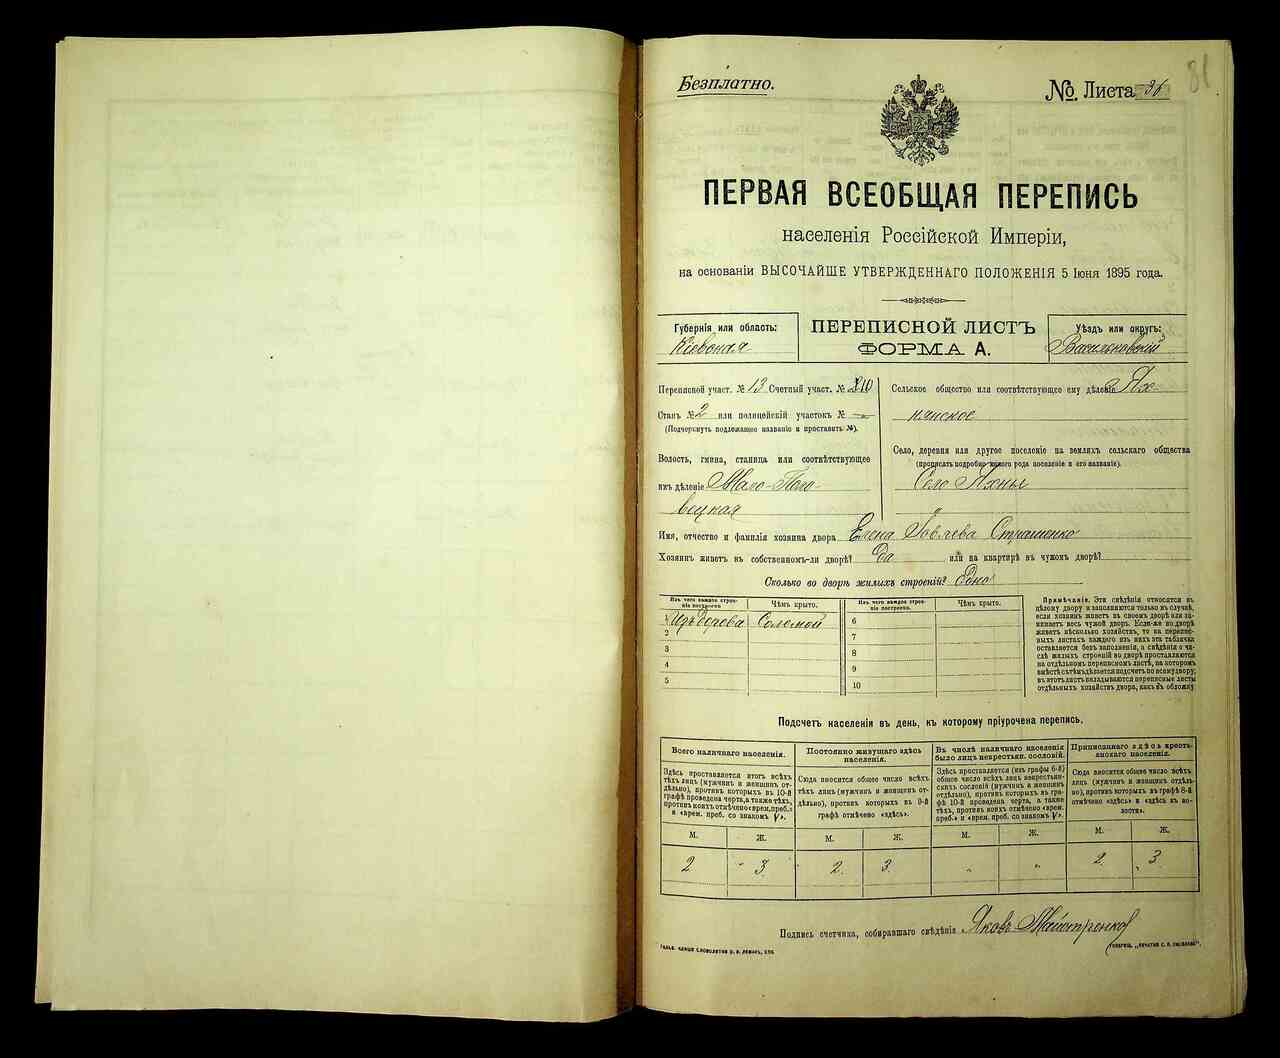 81
Безплатно.
№. Листа 36
ПЕРВАЯ ВСЕОБЩАЯ ПЕРЕПИСЬ
населенія Россійской Имперіи,
на основаніи ВЫСОЧАЙШЕ УТВЕРЖДЕННАГО ПОЛОЖЕНІЯ 5 Іюня 1895 года.
Губернія или область:
Кіевская
ПЕРЕПИСНОЙ ЛИСТЪ
ФОРМА А.
Уѣздъ или округъ:
Васильковскій
Переписной участ. № 13 Счетный участ. № 10
Станъ № 2 или полицейскій участокъ №
(Подчеркнуть подлежащее названіе и проставить №).
Волость, гмина, станица или соотвѣтствующее
имъ дѣленіе Мало-Поло-
вецкая
Сельское общество или соотвѣтствующее ему дѣленіе Ях-
нянское
Село, деревня или другое поселеніе на земляхъ сельскаго общества
(прописать подробно какого рода поселеніе и его названіе).
Село Яхны
Имя, отчество и фамилія хозяина двора Елена Страшенко
Хозяинъ живетъ въ собственномъ-ли дворѣ? Да или на квартирѣ въ чужомъ дворѣ?
Сколько во дворѣ жилыхъ строеній? Одно
Изъ чего каждое строе-
ніе построено.
Чѣмъ крыто.
Изъ дерева Соломой
2
3
4
5
Изъ чего каждое строе-
ніе построено.
Чѣмъ крыто.
6
7
8
9
10
Примѣчаніе. Эти свѣдѣнія относятся къ
цѣлому двору и заполняются только въ случаѣ,
если хозяинъ живетъ въ своемъ дворѣ или за-
нимаетъ весь чужой дворъ. Если-же во дворѣ
живетъ нѣсколько хозяйствъ, то на перепис-
ныхъ листахъ каждаго изъ нихъ эта табличка
оставляется безъ заполненія, а свѣдѣнія о чи-
слѣ жилыхъ строеній во дворѣ проставляются
на отдѣльномъ переписномъ листѣ, на которомъ
вмѣстѣ съ тѣмъ дѣлается подсчетъ по всему двору;
въ этотъ листъ вкладываются переписные листы
отдѣльныхъ хозяйствъ двора, какъ въ обложку
Подсчетъ населенія въ день, къ которому пріурочена перепись.
Всего наличнаго населенія.
Здѣсь проставляется итогъ всѣхъ
тѣхъ лицъ (мужчинъ и женщинъ от-
дѣльно), противъ которыхъ въ 10-й
графѣ проведена черта, а также тѣхъ,
противъ коихъ отмѣчено «врем. преб.»
и «врем. преб. со знакомъ V».
М. Ж.
2 3.
Постоянно живущаго здѣсь
населенія.
Сюда вносится общее число всѣхъ
тѣхъ лицъ (мужчинъ и женщинъ от-
дѣльно), противъ которыхъ въ 9-й
графѣ отмѣчено «здѣсь».
М. Ж.
2. 3.
Въ числѣ наличнаго населенія
было лицъ некрестьян. сословій.
Здѣсь проставляется (изъ графы 6-й)
общее число всѣхъ лицъ некрестьян-
скихъ сословій (мужчинъ и женщинъ
отдѣльно), противъ которыхъ въ гра-
фѣ 10-й проведена черта, а также
тѣхъ, противъ коихъ отмѣчено «врем.
преб.» и «врем. преб. со знакомъ V».
М. Ж.
„ „
Приписаннаго здѣсь кресть-
янскаго населенія.
Сюда вносится общее число всѣхъ
лицъ (мужчинъ и женщинъ отдѣль-
но), противъ которыхъ въ графѣ 8-й
отмѣчено «здѣсь» и «здѣсь въ во-
лости».
М. Ж.
2. 3.
Подпись счетчика, собиравшаго свѣдѣнія Яковъ Майстренко